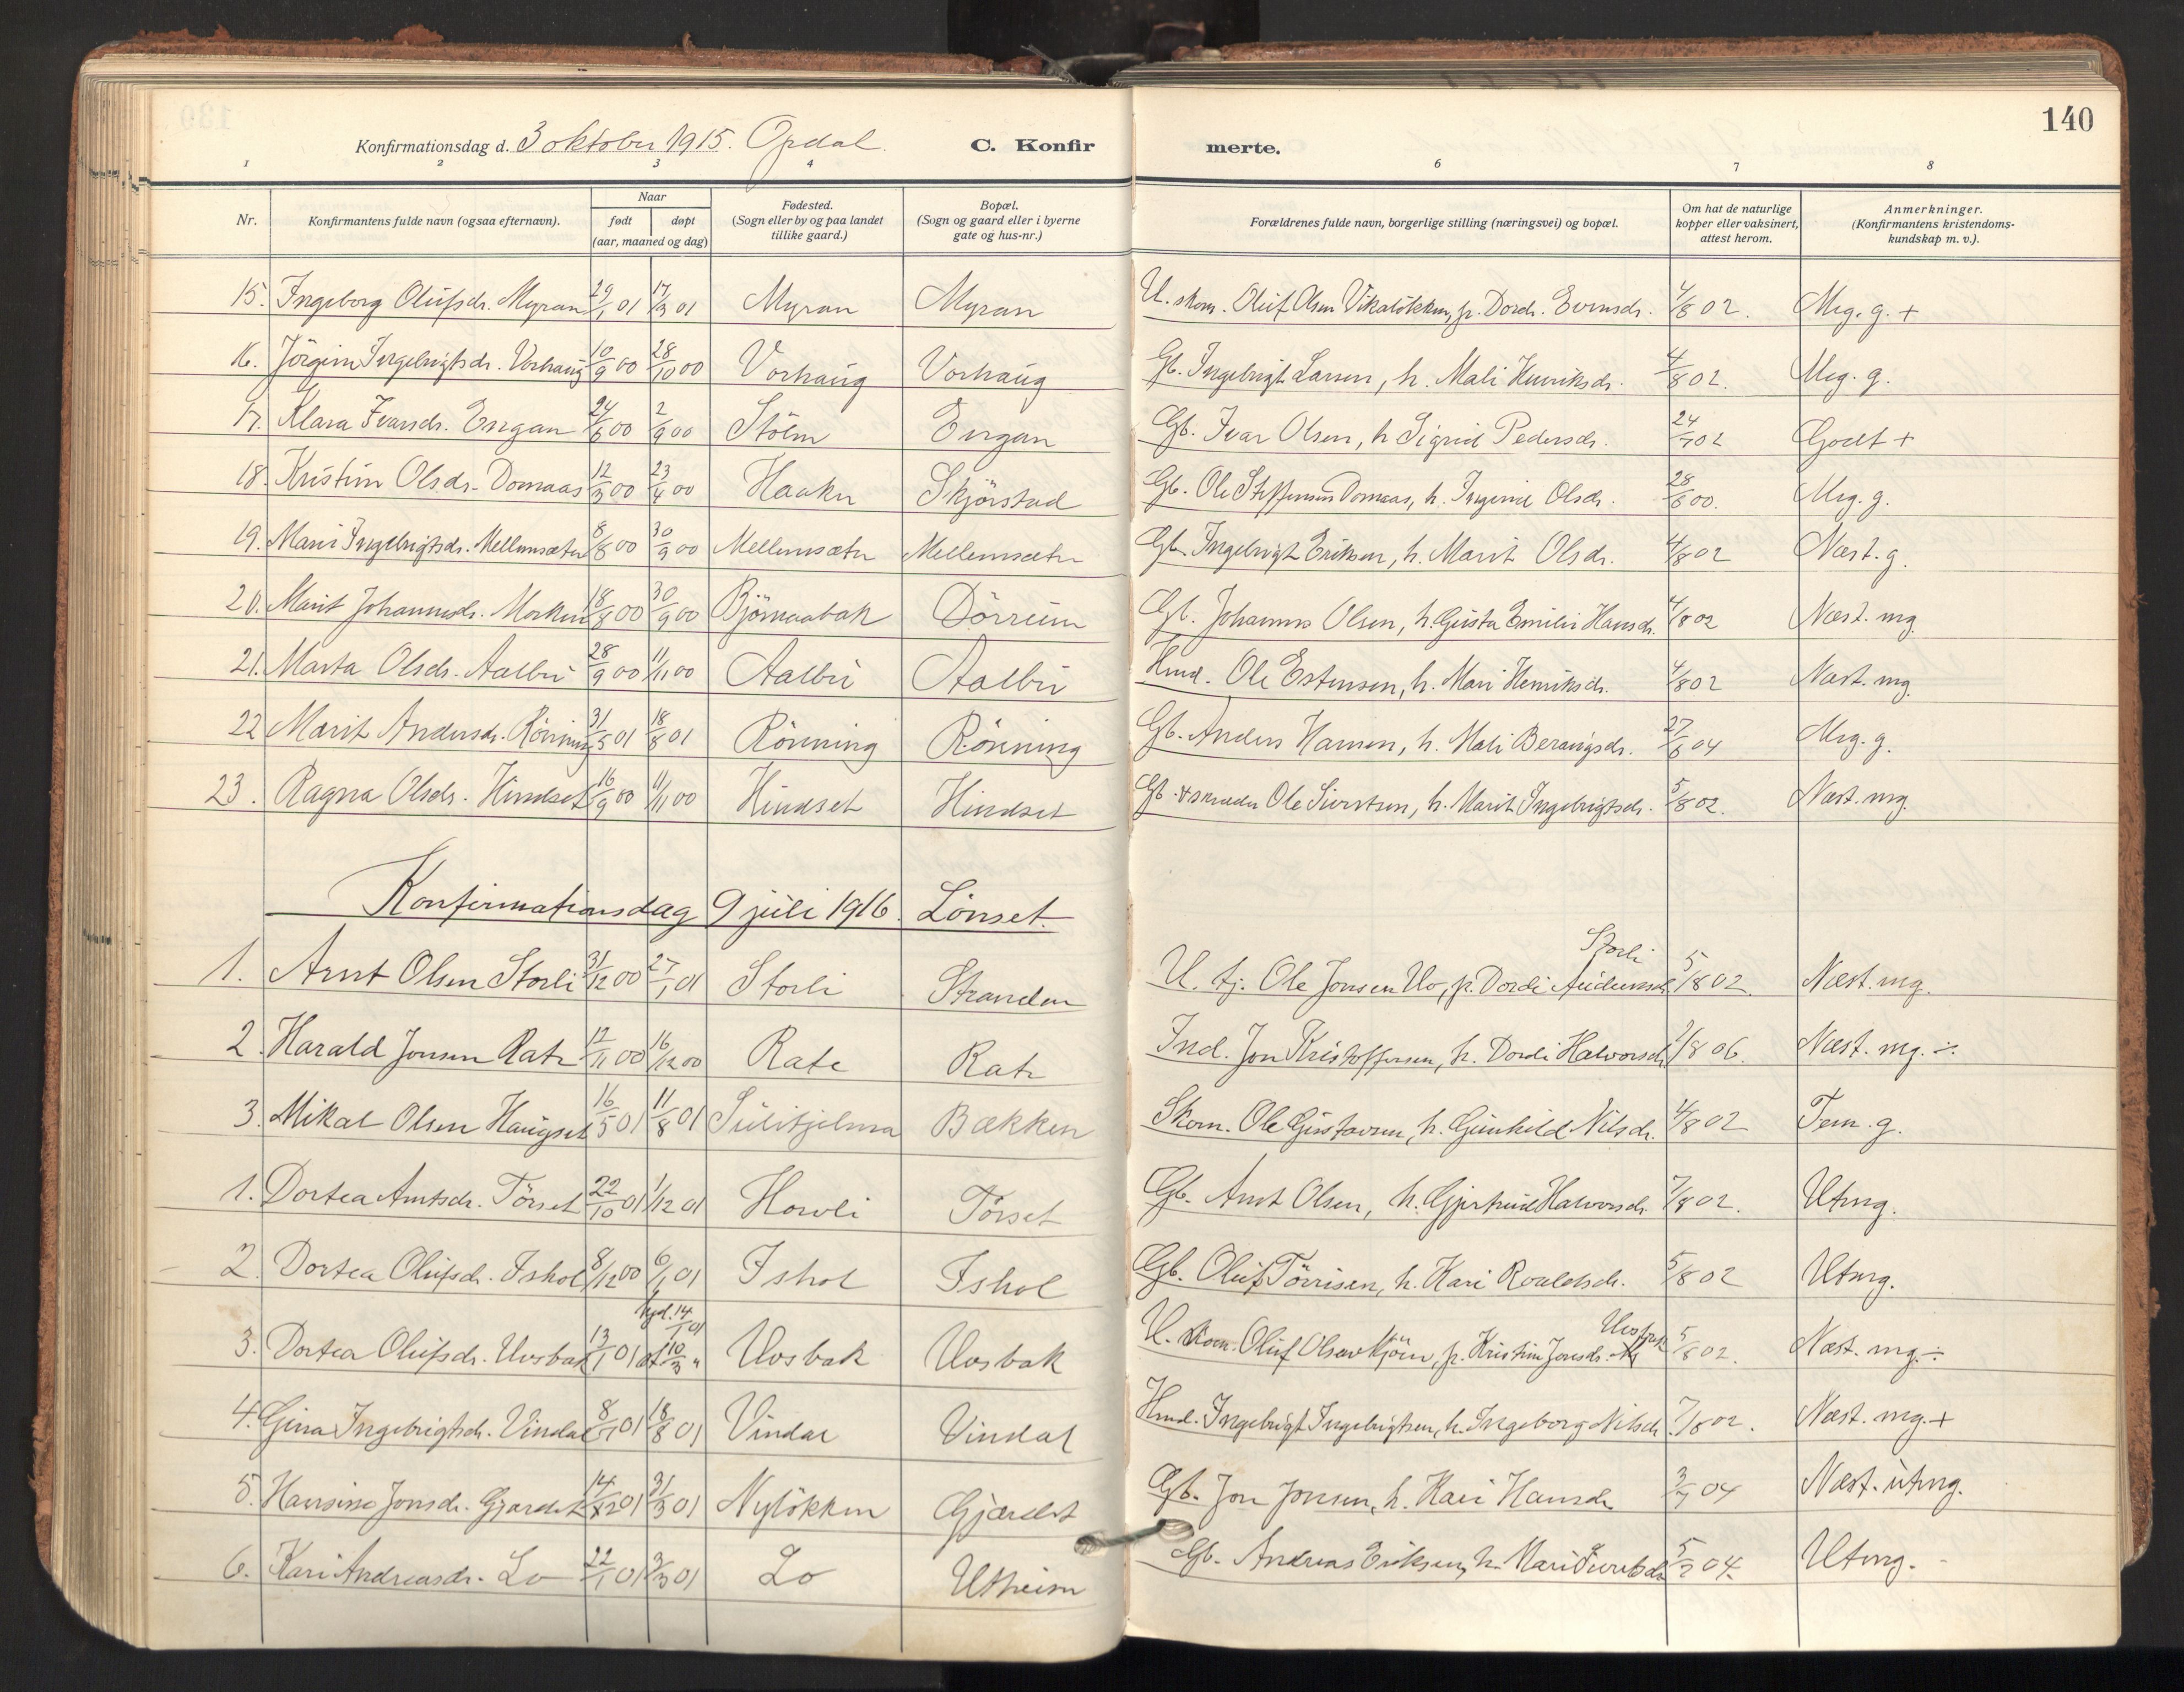 140
Konfirmationsdag d. 3 oktober 1915. Opdal. C. Konfir merte.
1 2 3 4 6 7 8
Nr. Konfirmantens fulde navn (ogsaa efternavn). Naar født døpt (aar, maaned og dag) Fødested. (Sogn eller by og paa landet tillike gaard.) Bopæl. (Sogn og gaard eller i byerne gate og hus-nr.) Forældrenes fulde navn, borgerlige stilling (næringsvei) og bopæl. Om hat de naturlige kopper eller vaksinert, attest herom. Anmerkninger. (Konfirmantens kristendoms-kundskap m. v.).
15. Ingeborg Olufsdr. Myran 29/1 01 17/3 01 Myran Myran U. skom. Oluf Olsen Vikaløkken, p. Dordi Evensdr. 7/8 02. Meg. g. +
16. Jörgine Ingebrigtsdr. Vorhaug 10/9 00 28/10 00 Vorhaug Vorhaug Gb. Ingebrigt Larsen, h. Mali Henriksdr. 4/8 02. Meg. g.
17. Klara Ivarsdr. Engan 24/6 00 2/9 00 Stölen Engan Gb. Ivar Olsen, h. Sigrid Pedersdr. 24/7 02 Godt +
18. Kristine Olsdr. Domaas 12/3 00 23/4 00 Haaker Skjörstad Gb. Ole Steffensen Domaas, h. Ingerid Olsdr. 28/6 00. Meg. g.
19. Mari Ingebrigtsdr. Mellemsæter 8/8 00 30/9 00 Mellemsæter Mellemsæter Gb. Ingebrigt Eriksen, h. Marit Olsdr. 4/8 02 Næst. g.
20. Marit Johannesdr. Morken 18/8 00 30/9 00 Björnaabak Dörrum Gb. Johannes Olsen, h. Gusta Emilie Hansdr. 4/8 02 Næst. mg.
21. Marta Olsdr. Aalbu 28/9 00 11/11 00 Aalbu Aalbu Hmd. Ole Estensen, h. Mari Henriksdr. 4/8 02 Næst. mg.
22 Marit Andersdr. Rönning 31/5 01 18/8 01 Rönning Rönning Gb. Anders Hansen, h. Mali Beraugsdr. 27/6 04 Meg. g.
23. Ragna Olsdr. Hindset 16/9 00 11/11 00 Hindset Hindset Gb. + smeder Ole Sivertsen, h. Marit Ingebrigtsdr. 5/8 02. Næst. mg.
Konfirmationsdag 9 juli 1916. Lönset.
1. Arnt Olsen Storli 31/12 00 27/1 01 Storli Stranden U. tj. Ole Jonsen Uv, p. Dordi Audunsdr. Storli 5/8 02. Næst. mg.
2. Harald Jonsen Rate 12/11 00 16/12 00 Rate Rate Ind. Jon Kristoffersen, h. Dordi Halvorsdr. 7/8 06. Næst. mg. ÷
3. Mikal Olsen Haugset 16/5 01 11/8 01 Sulitjelma Bækken Skom. Ole Gustavsen, h. Gunhild Nilsdr. 4/8 02 Tem. g.
1. Dortea Arntsdr. Törset 22/10 01 1/12 01 Horvli Törset Gb. Arnt Olsen, h. Gjertrud Halvorsdr. 7/8 02. Utmg.
2. Dortea Olufsdr. Ishol 8/12 00 6/1 01 Ishol Ishol Gb. Oluf Törrisen, h. Kari Roaldsdr. 5/8 02 Utmg.
3. Dortea Olufsdr. Uvsbak 13/1 01 hjd. 14/1 01 st. 10/3 " Uvsbak Uvsbak U. skom. Oluf Olsen Kjören, p. Kristine Jonsdr. Uvsbak 5/8 02. Næst. mg. ÷
4. Gina Ingebrigtsdr. Vindal 8/7 01 18/8 01 Vindal Vindal Hmd. Ingebrigt Ingebrigtsen, h. Ingeborg Nilsdr. 7/8 02. Næst. mg. +
5. Hansine Jonsdr. Gjærdet 14/2 01 31/3 01 Nyløkken Gjærdet Gb. Jon Jonsen, h. Kari Hansdr. 3/7 04 Næst. utmg.
6. Kari Andreasdr. Lo 22/1 01 3/3 01 Lo Utheim Gb. Andreas Eriksen, h. Mari Sivertsdr. 5/7 04. Utmg.